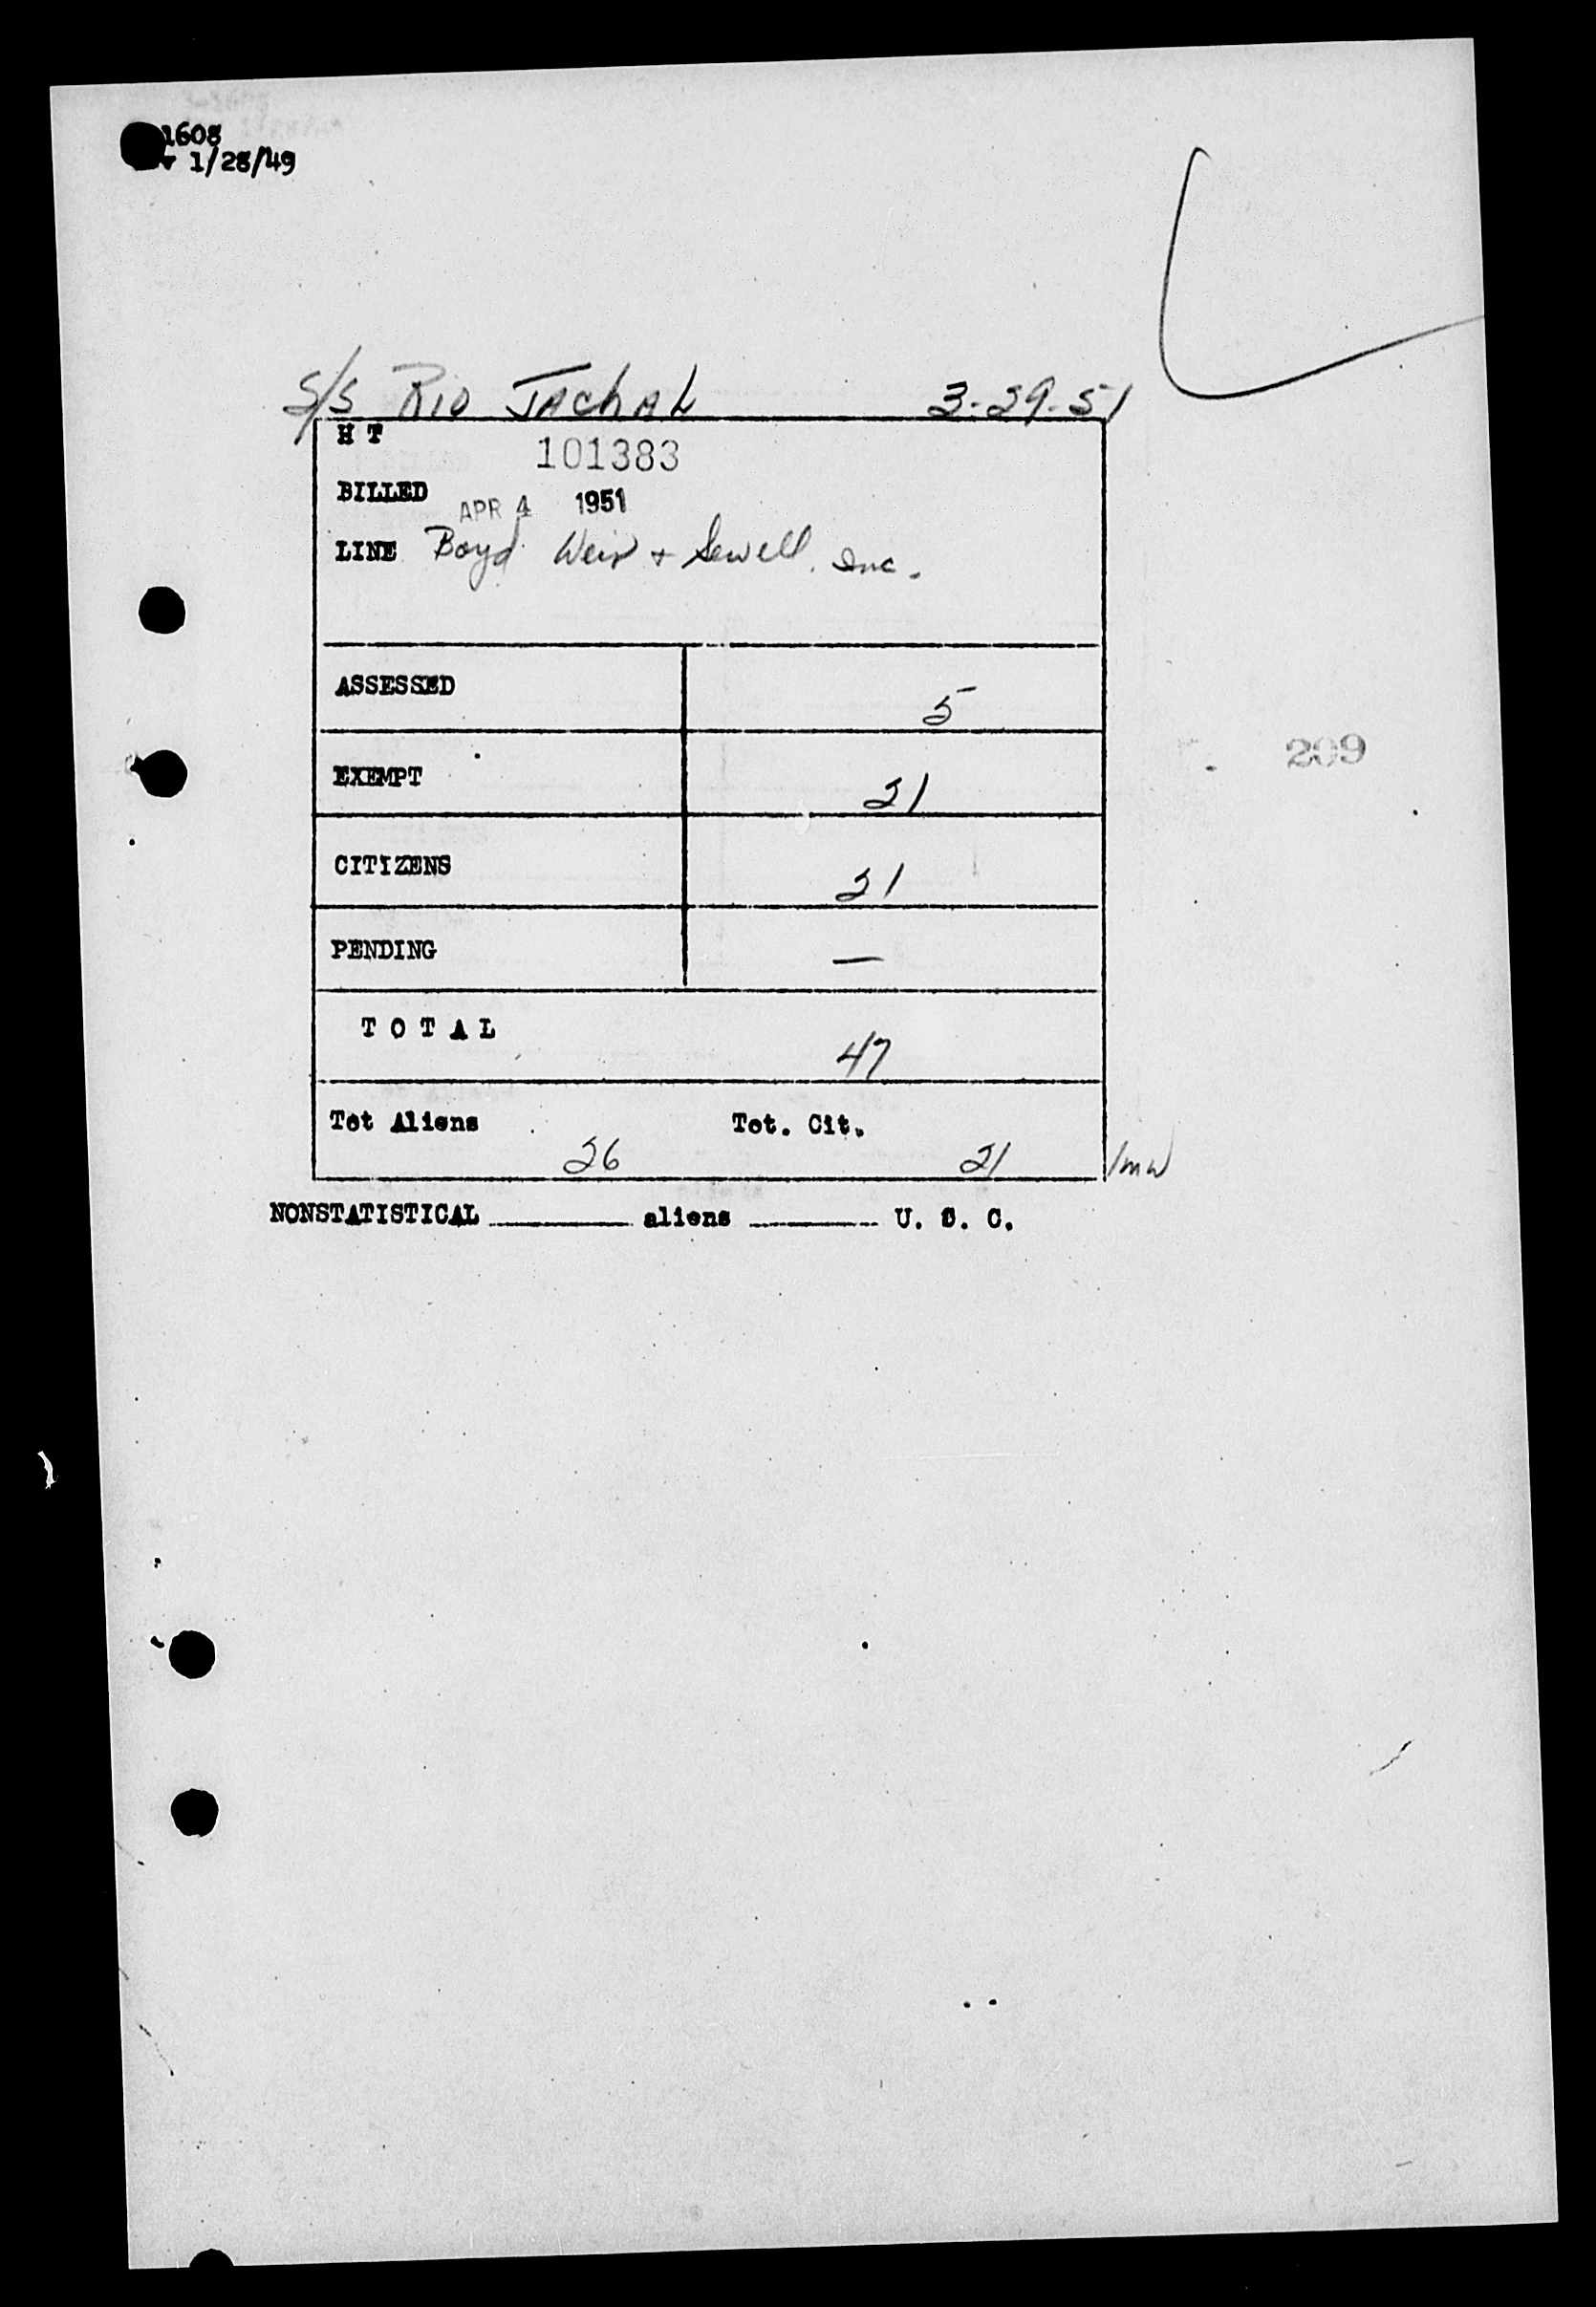 1608
1/28/49
S/S Rio Jachal 3-29-51
H T
101383
BILLED APR 4 1951
LINE Boyd Weir + Sewell, Inc.
ASSESSED 5
EXEMPT 21
209
CITIZENS 21
PENDING —
TOTAL 47
Tot Aliens Tot. Cit.
26 21 /mw
NONSTATISTICAL ________ aliens ________ U. S. C.